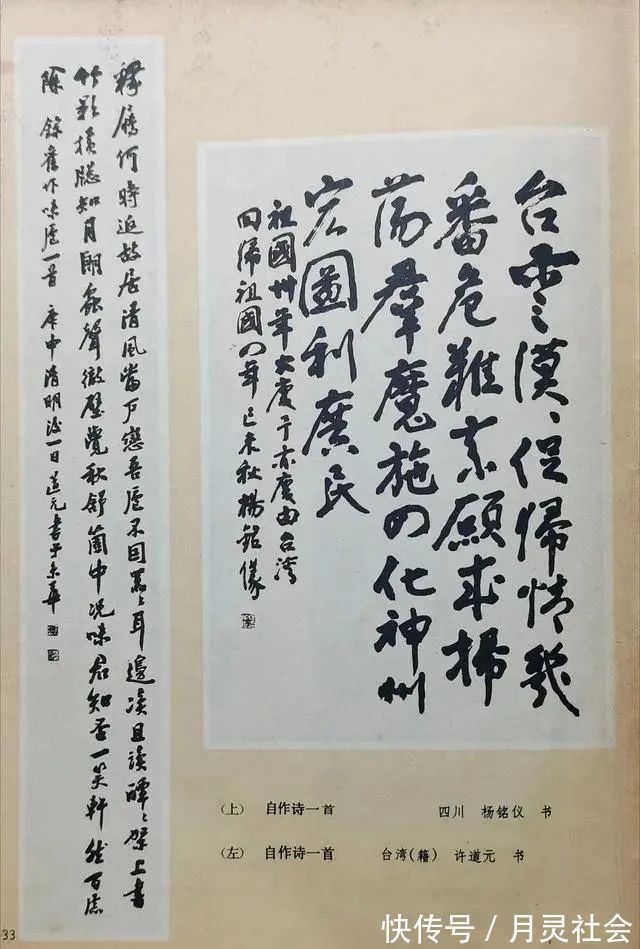 台雲漠〻促歸情幾
番危難素願求掃
蕩羣魔施四化神州
宏圖利民
祖國卅年大慶予亦慶由台灣
回歸祖國四年 己未秋 楊銘儀
何時返故居清風當戶戀吾廬不因〻耳邊淡且讀〻架上書
竹影橫牕知月朗蟲聲徹壁覺秋舒箇中況味君知否一笑軒然百慮
除 錄舊作味廬一首 庚申清明後一日 道元書于京華
(上) 自作诗一首 四川 杨铭仪 书
(左) 自作诗一首 台湾(籍) 许道元 书
33
快传号/月灵社会